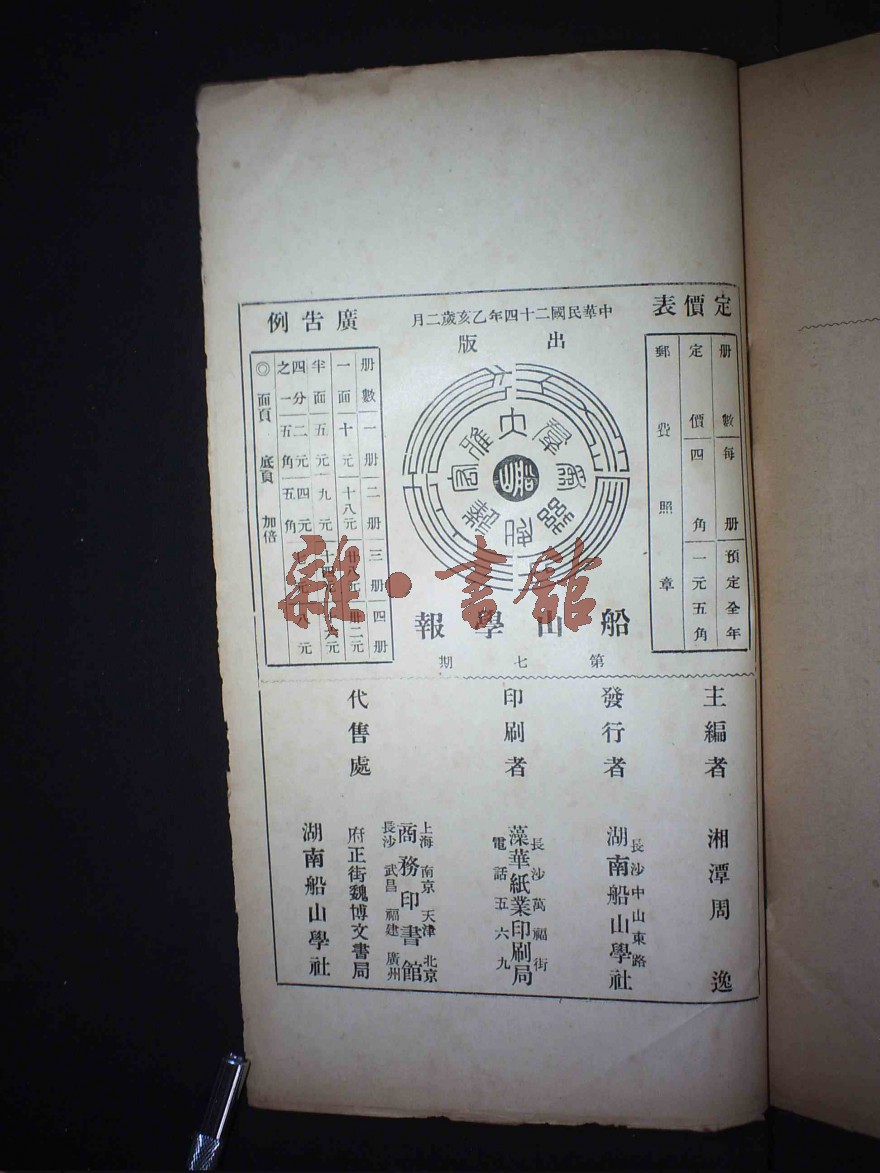 定價表
冊數 每冊 預定全年
定價 四角 一元五角
郵費照章
中華民國二十四年乙亥歲二月
出版
船山
船山學報
第七期
廣告例
冊數 一冊 二冊 三冊 四冊
一面 十元 十八元
半面 五元 九元
四分之一 二元五角 四元五角
◎面頁 底頁 加倍
雜·書館
主編者
湘潭周逸
發行者
長沙中山東路
湖南船山學社
印刷者
長沙萬福街
藻華紙業印刷局
電話五六九
代售處
上海 南京 天津 北京
商務印書館
長沙 武昌 福建 廣州
府正街魏博文書局
湖南船山學社